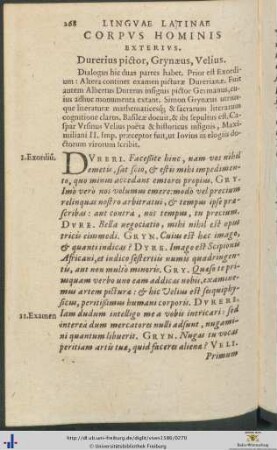 268 LINGVAE LATINAE
CORPVS HOMINIS
EXTERIVS.
Durerius pictor, Grynæus, Velius.
Dialogus hic duas partes habet. Prior est Exordi-
um: Altera continet examen picturæ Durerianæ. Fuit
autem Albertus Durerus insignis pictor Germanus, cu-
ius adhuc monumenta extant. Simon Grynæus utriusque
literaturæ mathematicesq́; & sacrarum literarum
cognitione clarus, Basileæ docuit, & ibi sepultus est. Ca-
spar Vrsinus Velius poëta & historicus insignis, Maxi-
miliani II. Imp. præceptor fuit, ut Iovius in elogiis do-
ctorum virorum scribit.
1. Exordiū. DVRERI. Facessite hinc, nam vos nihil
emetis, sat scio, & estis mihi impedimen-
to, quo minus accedant emtores propius. GRY.
Imò verò nos volumus emere: modò vel precium
relinquas nostro arbitratui, & tempus ipse præ-
scribas: aut contra, nos tempus, tu precium.
DVRE. Bella negotiatio, mihi nihil est opus
tricis eiusmodi. GRYN. Cuius est hæc imago,
& quanti indicas? DVRE. Imago est Scipionis
Africani, et indico sestertiis numis quadringen-
tis, aut non multò minoris. GRY. Quæso te pri-
usquam verbo uno eam addicas nobis, examine-
mus artem picturæ: & hic Velius est semiphy-
sicus, peritissimus humani corporis. DVRERI.
11. Examen Iam dudum intellego me à vobis intricari: sed
interea dum mercatores nulli adsunt, nugami-
ni quantum libuerit. GRYN. Nugas tu vocas
peritiam artis tuæ, quid faceres alienæ? VELI.
Primum
http://dl.ub.uni-freiburg.de/diglit/vives1588/0270
© Universitätsbibliothek Freiburg